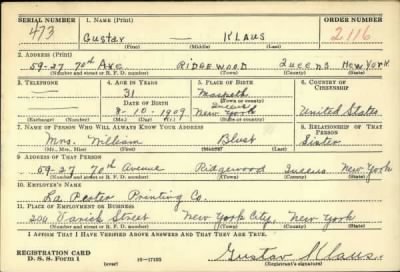 SERIAL NUMBER 1. NAME (Print) ORDER NUMBER
473 Gustav — KLAUS 2116
(First) (Middle) (Last)
2. ADDRESS (Print)
59-27 70th Ave. RIDGEWOOD Queens New York
(Number and street or R. F. D. number) (Town) (County) (State)
3. TELEPHONE 4. AGE IN YEARS 5. PLACE OF BIRTH 6. COUNTRY OF CITIZENSHIP
31 Maspeth
DATE OF BIRTH (Town or county)
8-10-1909 New York United States
(Exchange) (Number) (Mo.) (Day) (Yr.) (State or country)
7. NAME OF PERSON WHO WILL ALWAYS KNOW YOUR ADDRESS 8. RELATIONSHIP OF THAT PERSON
Mrs. William Blust Sister
(Mr., Mrs., Miss) (First) (Middle) (Last)
9. ADDRESS OF THAT PERSON
59-27 70th Avenue Ridgewood Queens New York
(Number and street or R. F. D. number) (Town) (County) (State)
10. EMPLOYER'S NAME
Printing Co.
11. PLACE OF EMPLOYMENT OR BUSINESS
200 Varick Street New York City, New York
(Number and street or R. F. D. number) (Town) (County) (State)
I AFFIRM THAT I HAVE VERIFIED ABOVE ANSWERS AND THAT THEY ARE TRUE.
REGISTRATION CARD
D. S. S. FORM 1 (over) Gustav Klaus
(Registrant's signature)